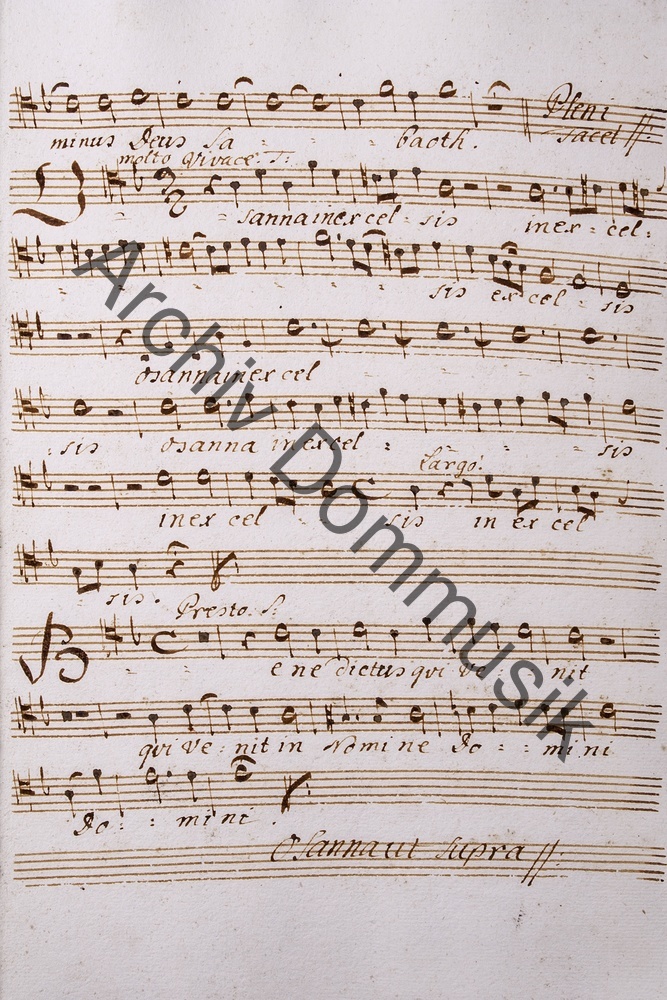 minus Deus Sa - - baoth. Pleni
tacet
molto Vivace. T:
O - - - sanna in excel - sis in ex - cel -
- - - - - - sis excel - sis
osanna in excel
- sis osanna in excel - - - - sis
Largo.
in ex cel - - sis in ex cel
sis.
Presto S:
B - - - enedictus qui ve - nit
qui ve - nit in Nomine Do - - mini
Do - - mini.
Osanna ut supra
Archiv Dommusik